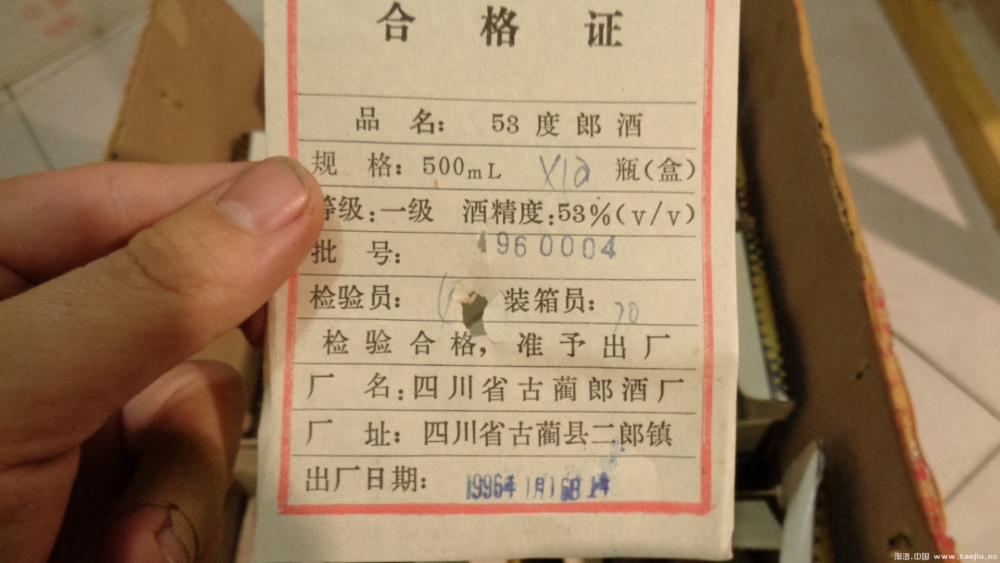 合格证
品 名: 53度郎酒
规 格: 500mL X12 瓶(盒)
等级:一级 酒精度:53%(v/v)
批 号: 960004
检验员: 装箱员: 20
检验合格,准予出厂
厂 名:四川省古蔺郎酒厂
厂 址: 四川省古蔺县二郎镇
出厂日期: 1996年1月16日
淘酒.中国 www.taojiu.cc